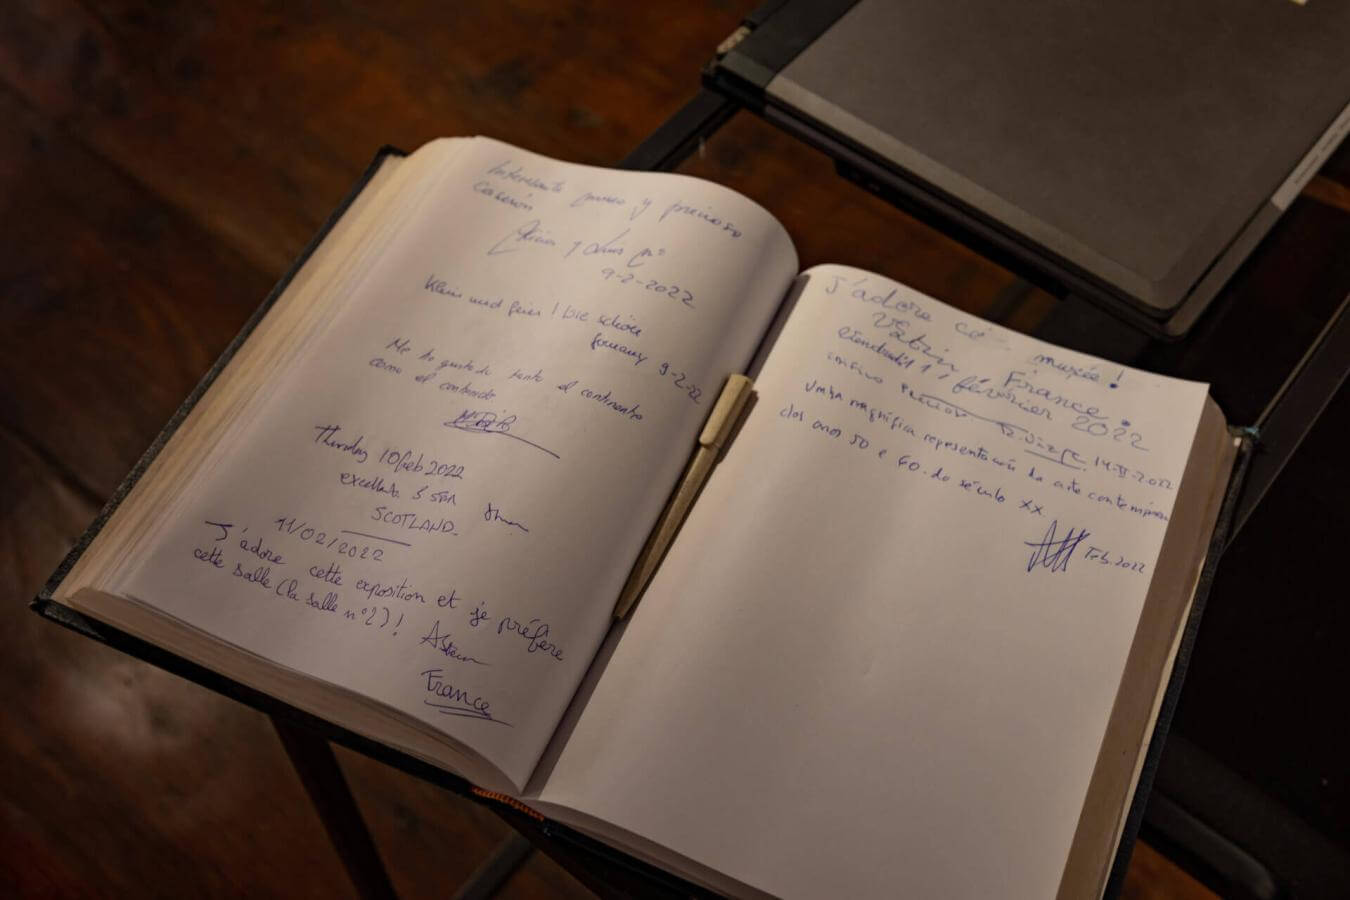 Interesante museo y precioso
Caserón
y Luis
9-2-2022
Klein und fein!
Germany 9-2-22
Me ha gustado tanto el continente
como el contenido
Thursday 10 Feb 2022
SCOTLAND
11/02/2022
J'adore cette exposition et je préfère
cette salle (la salle n°2)!
France
J'adore ce musée!
France
11, février 2022
14-II-2022
Unha magnífica representación da arte contemporánea
dos anos 50 e 60 do século XX
Feb. 2022